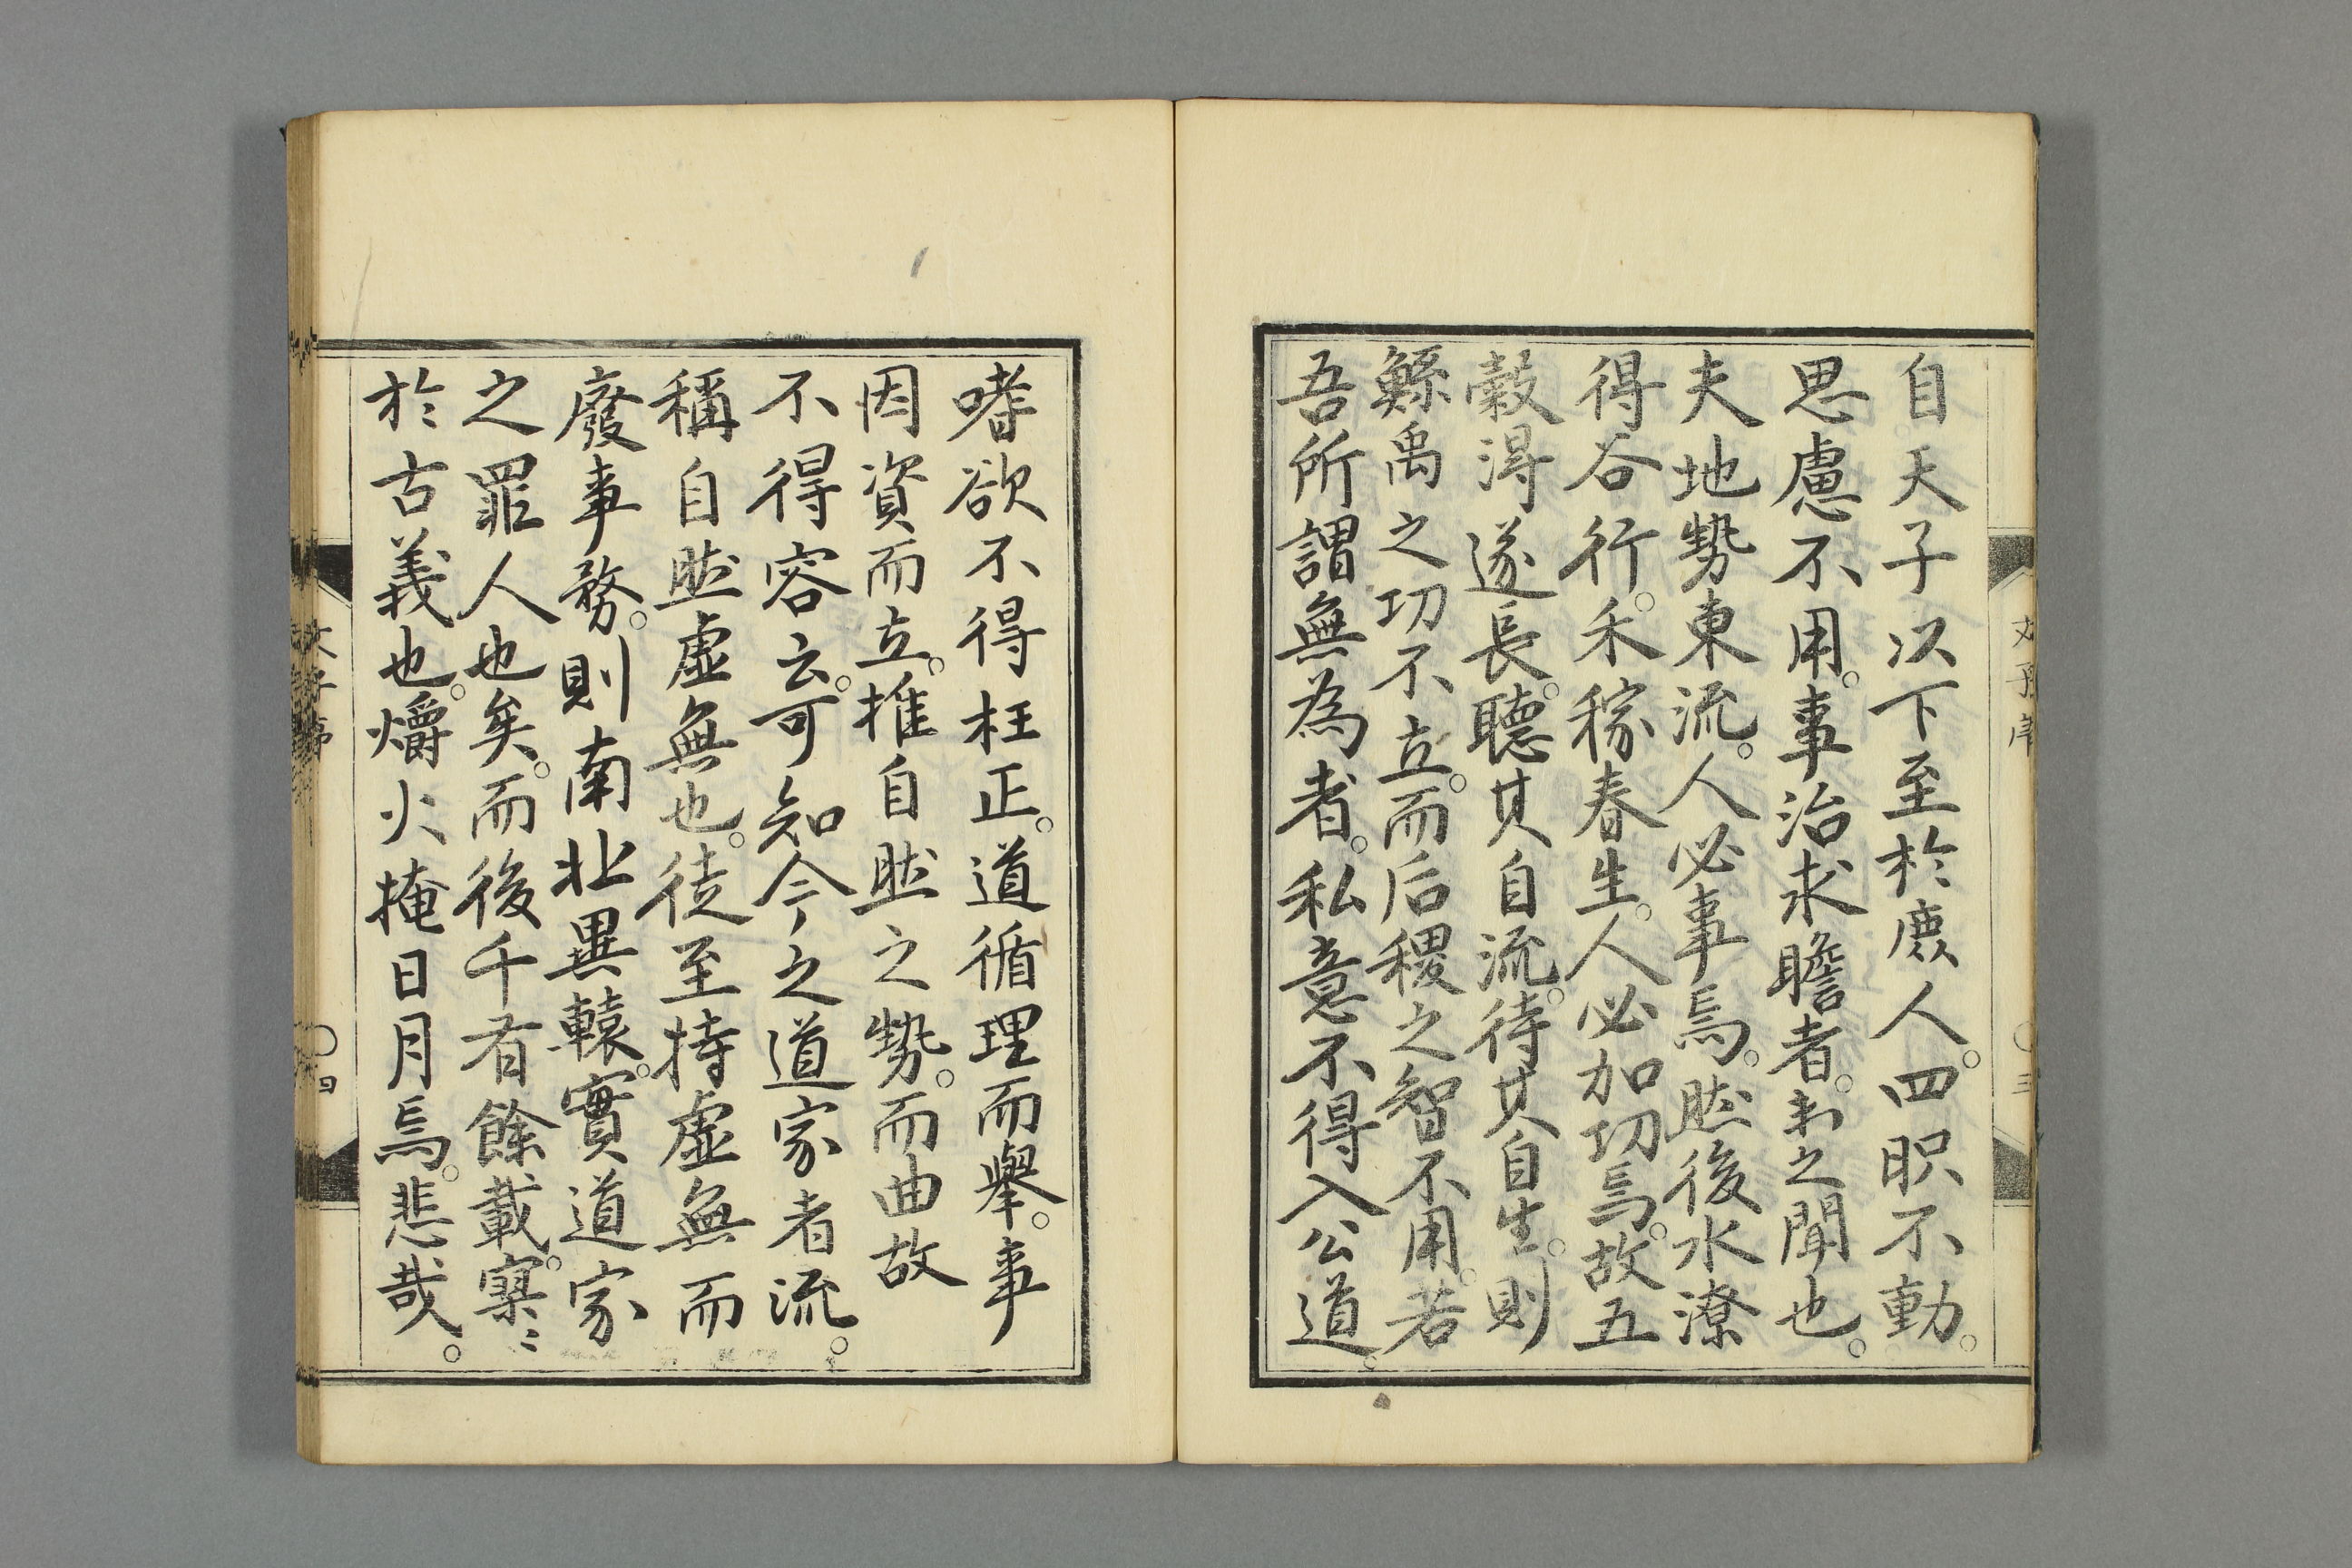 自天子以下至於庶人。四职不動。
思慮不用。事治求贍者。未之聞也。
夫地勢東流。人必事焉。然後水潦
得谷行。禾稼春生。人必加功焉。故五
穀得遂長。聽其自流。待其自生。則
鯀禹之功不立。而后稷之智不用。若
吾所謂無為者。私意不得入公道。
嗜欲不得枉正。道循理而舉。事
因資而立。推自然之勢。而曲故
不得容云。可知今之道家者流。
稱自然虛無也。徒至持虛無而
廢事務。則南北異轅。實道家
之罪人也矣。而後千有餘載。寥〻
於古義也。爝火掩日月焉。悲哉。
文子序
〇三
文子序
〇四